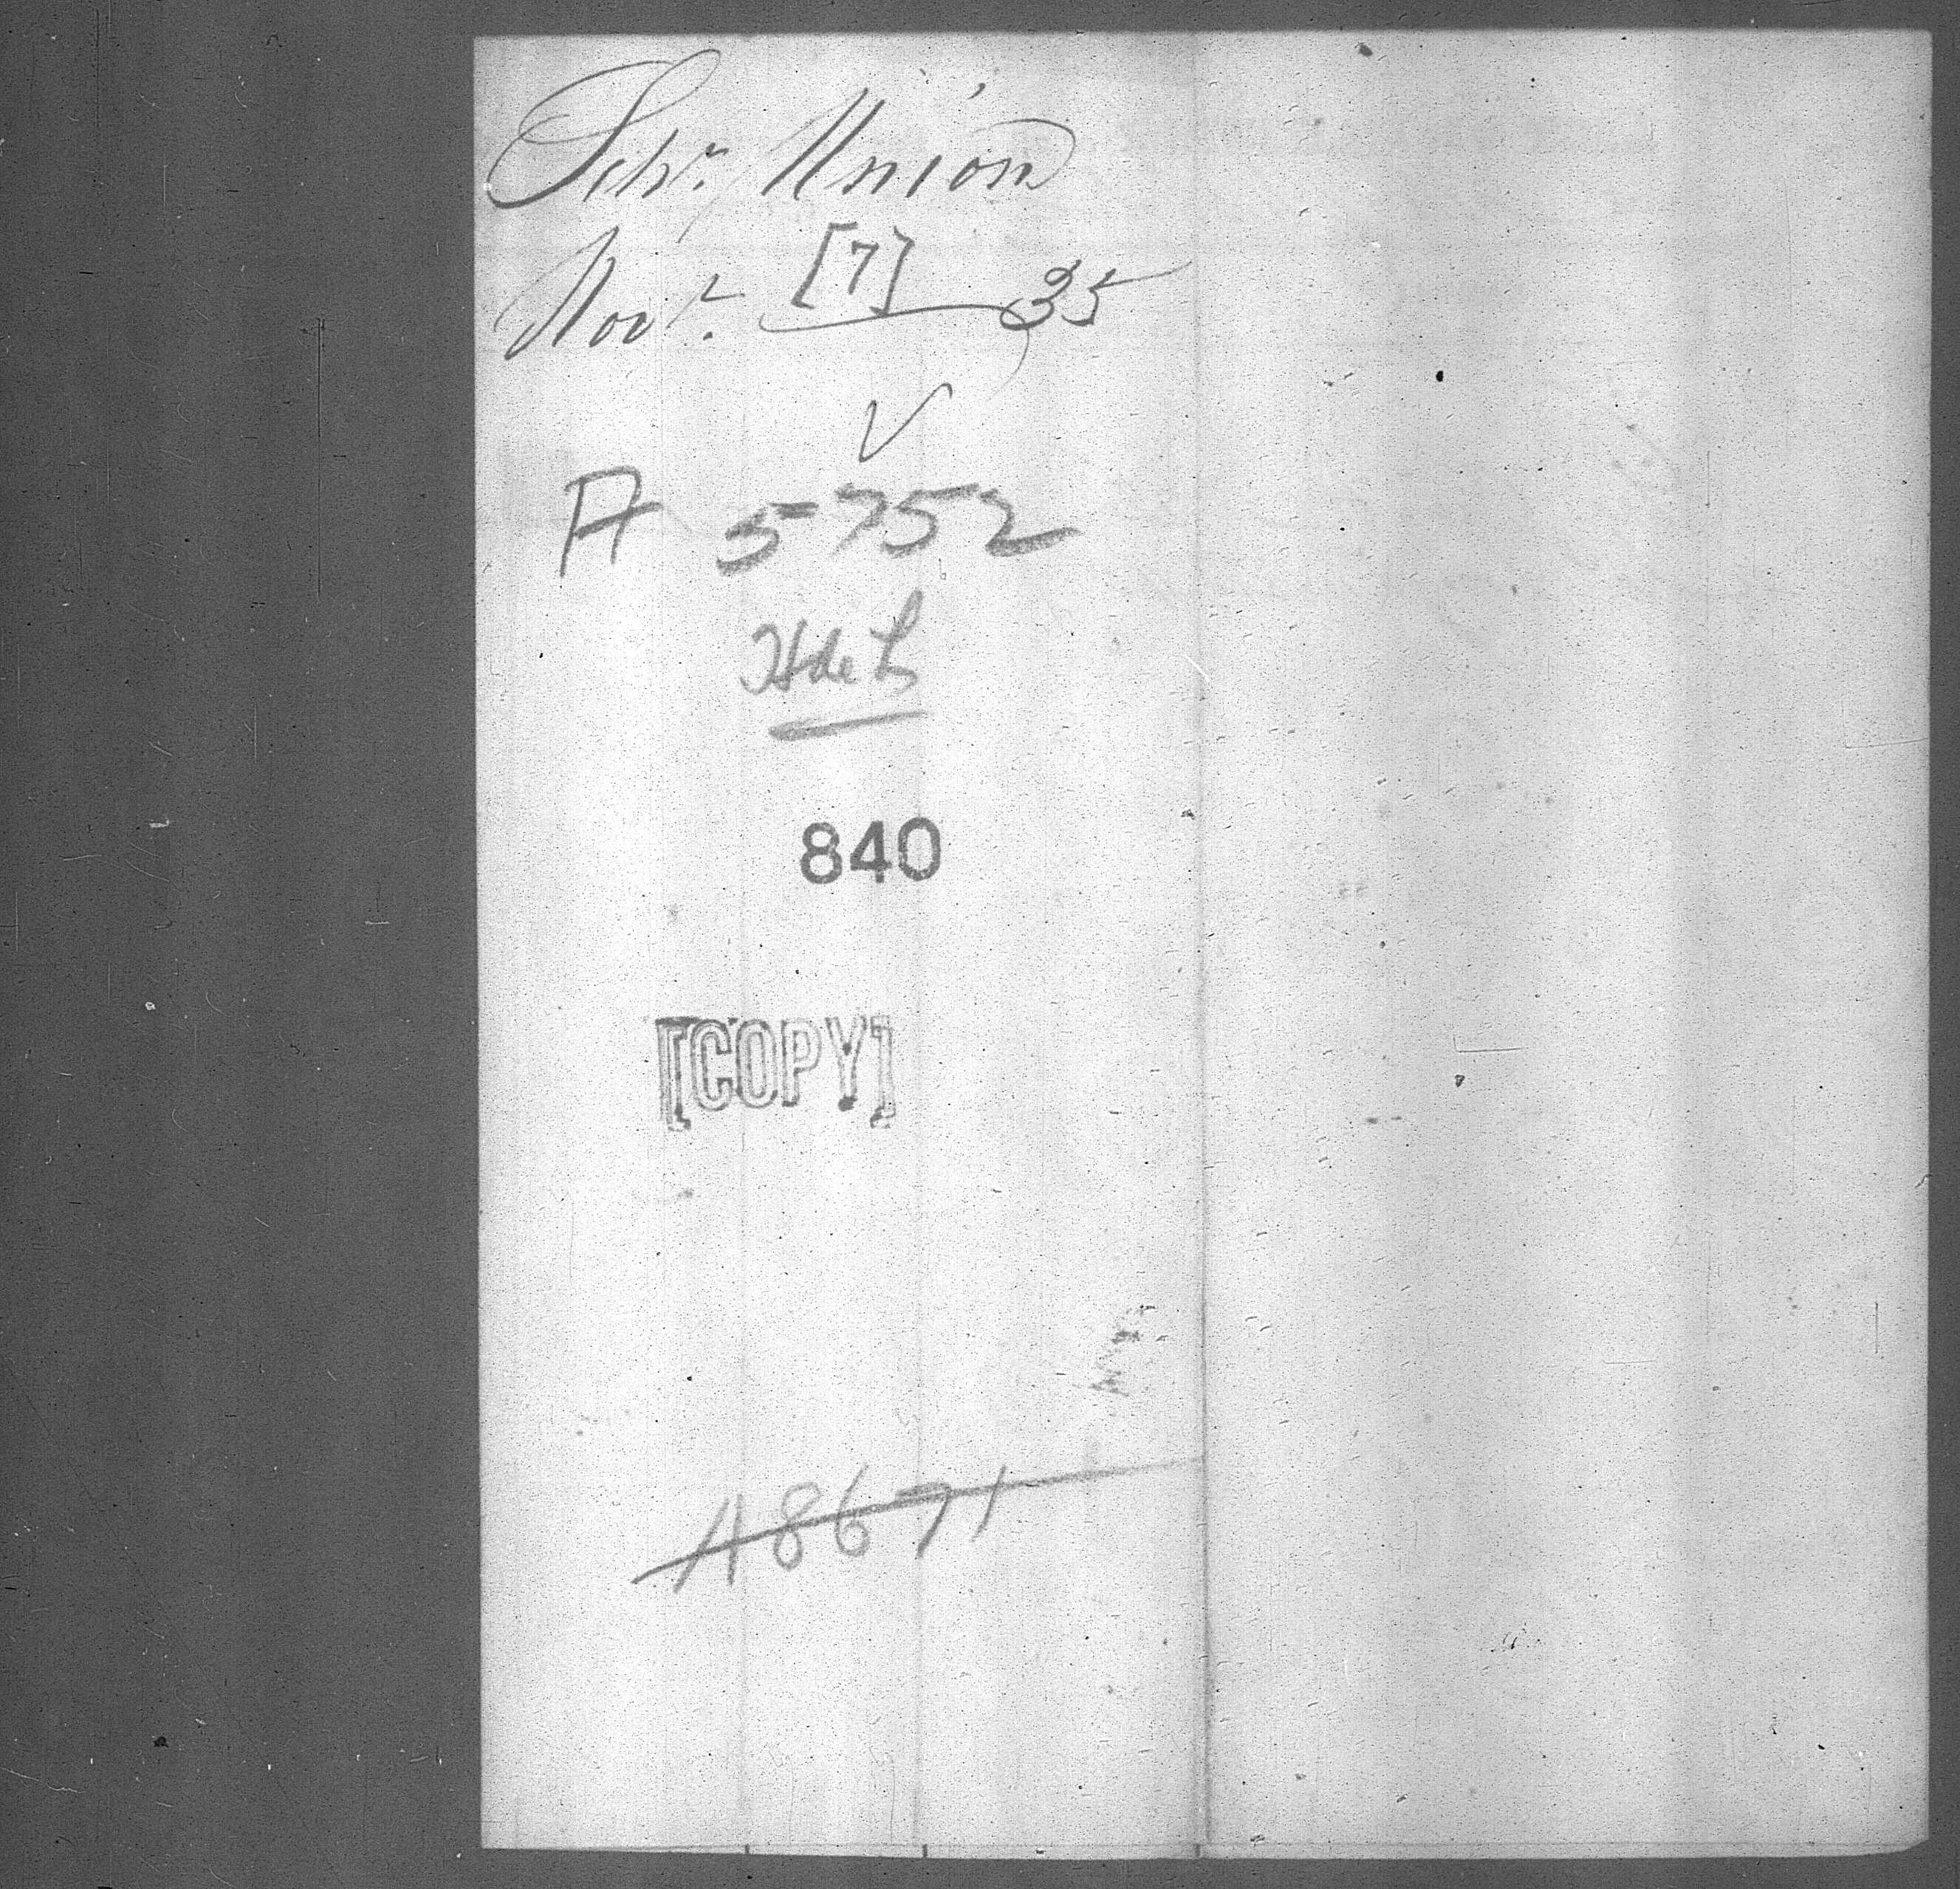 Schr. Union
Novr. [7] 35
A 5752
H de L
840
[COPY]
A8671